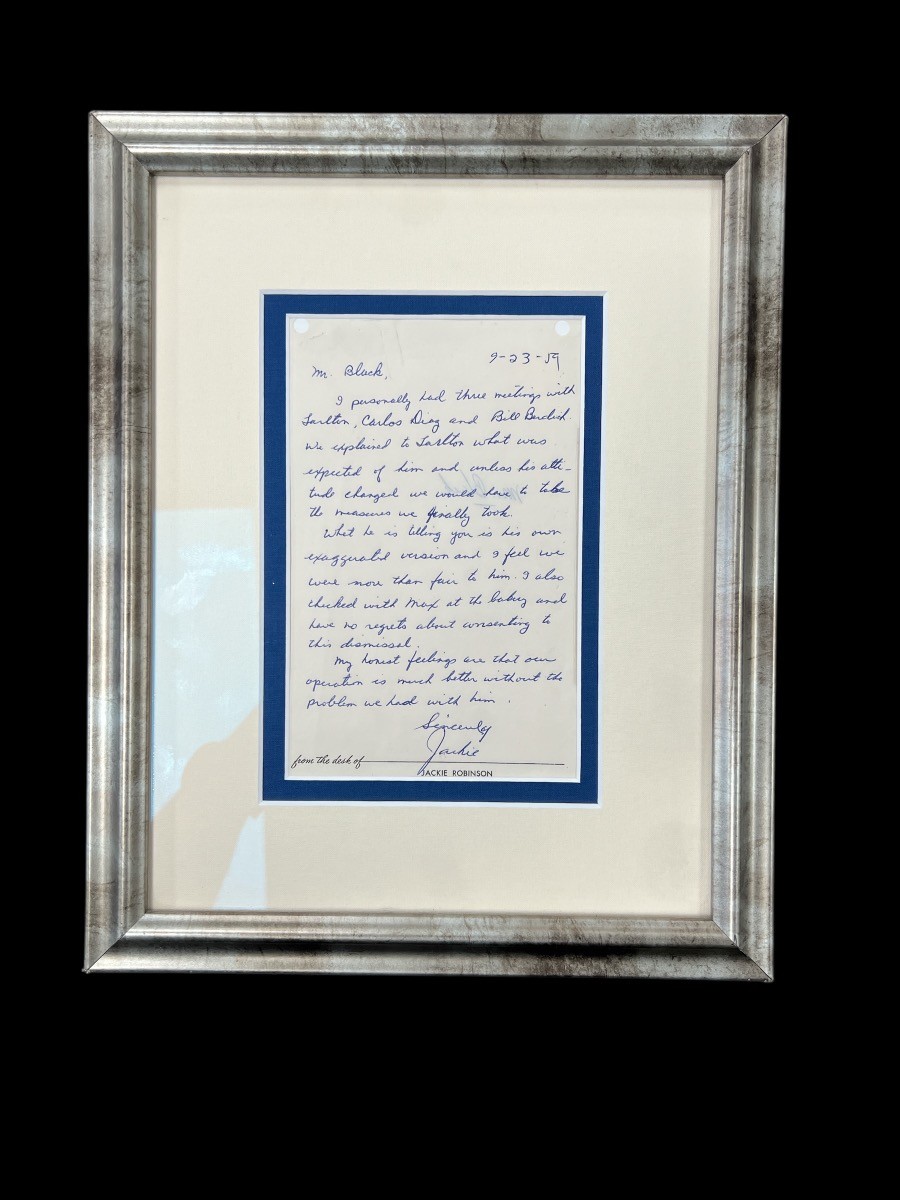 9-23-59
Mr. Black,
I personally had three meetings with
Tarlton, Carlos Diaz and Bill
We explained to Tarlton what was
expected of him and unless his atti-
tude changed we would have to take
the measures we finally took.
What he is telling you is his own
exaggerated version and I feel we
were more than fair to him. I also
checked with Max at the bakery and
have no regrets about consenting to
this dismissal.
My honest feelings are that our
operation is much better without the
problem we had with him.
Sincerely
Jackie
from the desk of
JACKIE ROBINSON